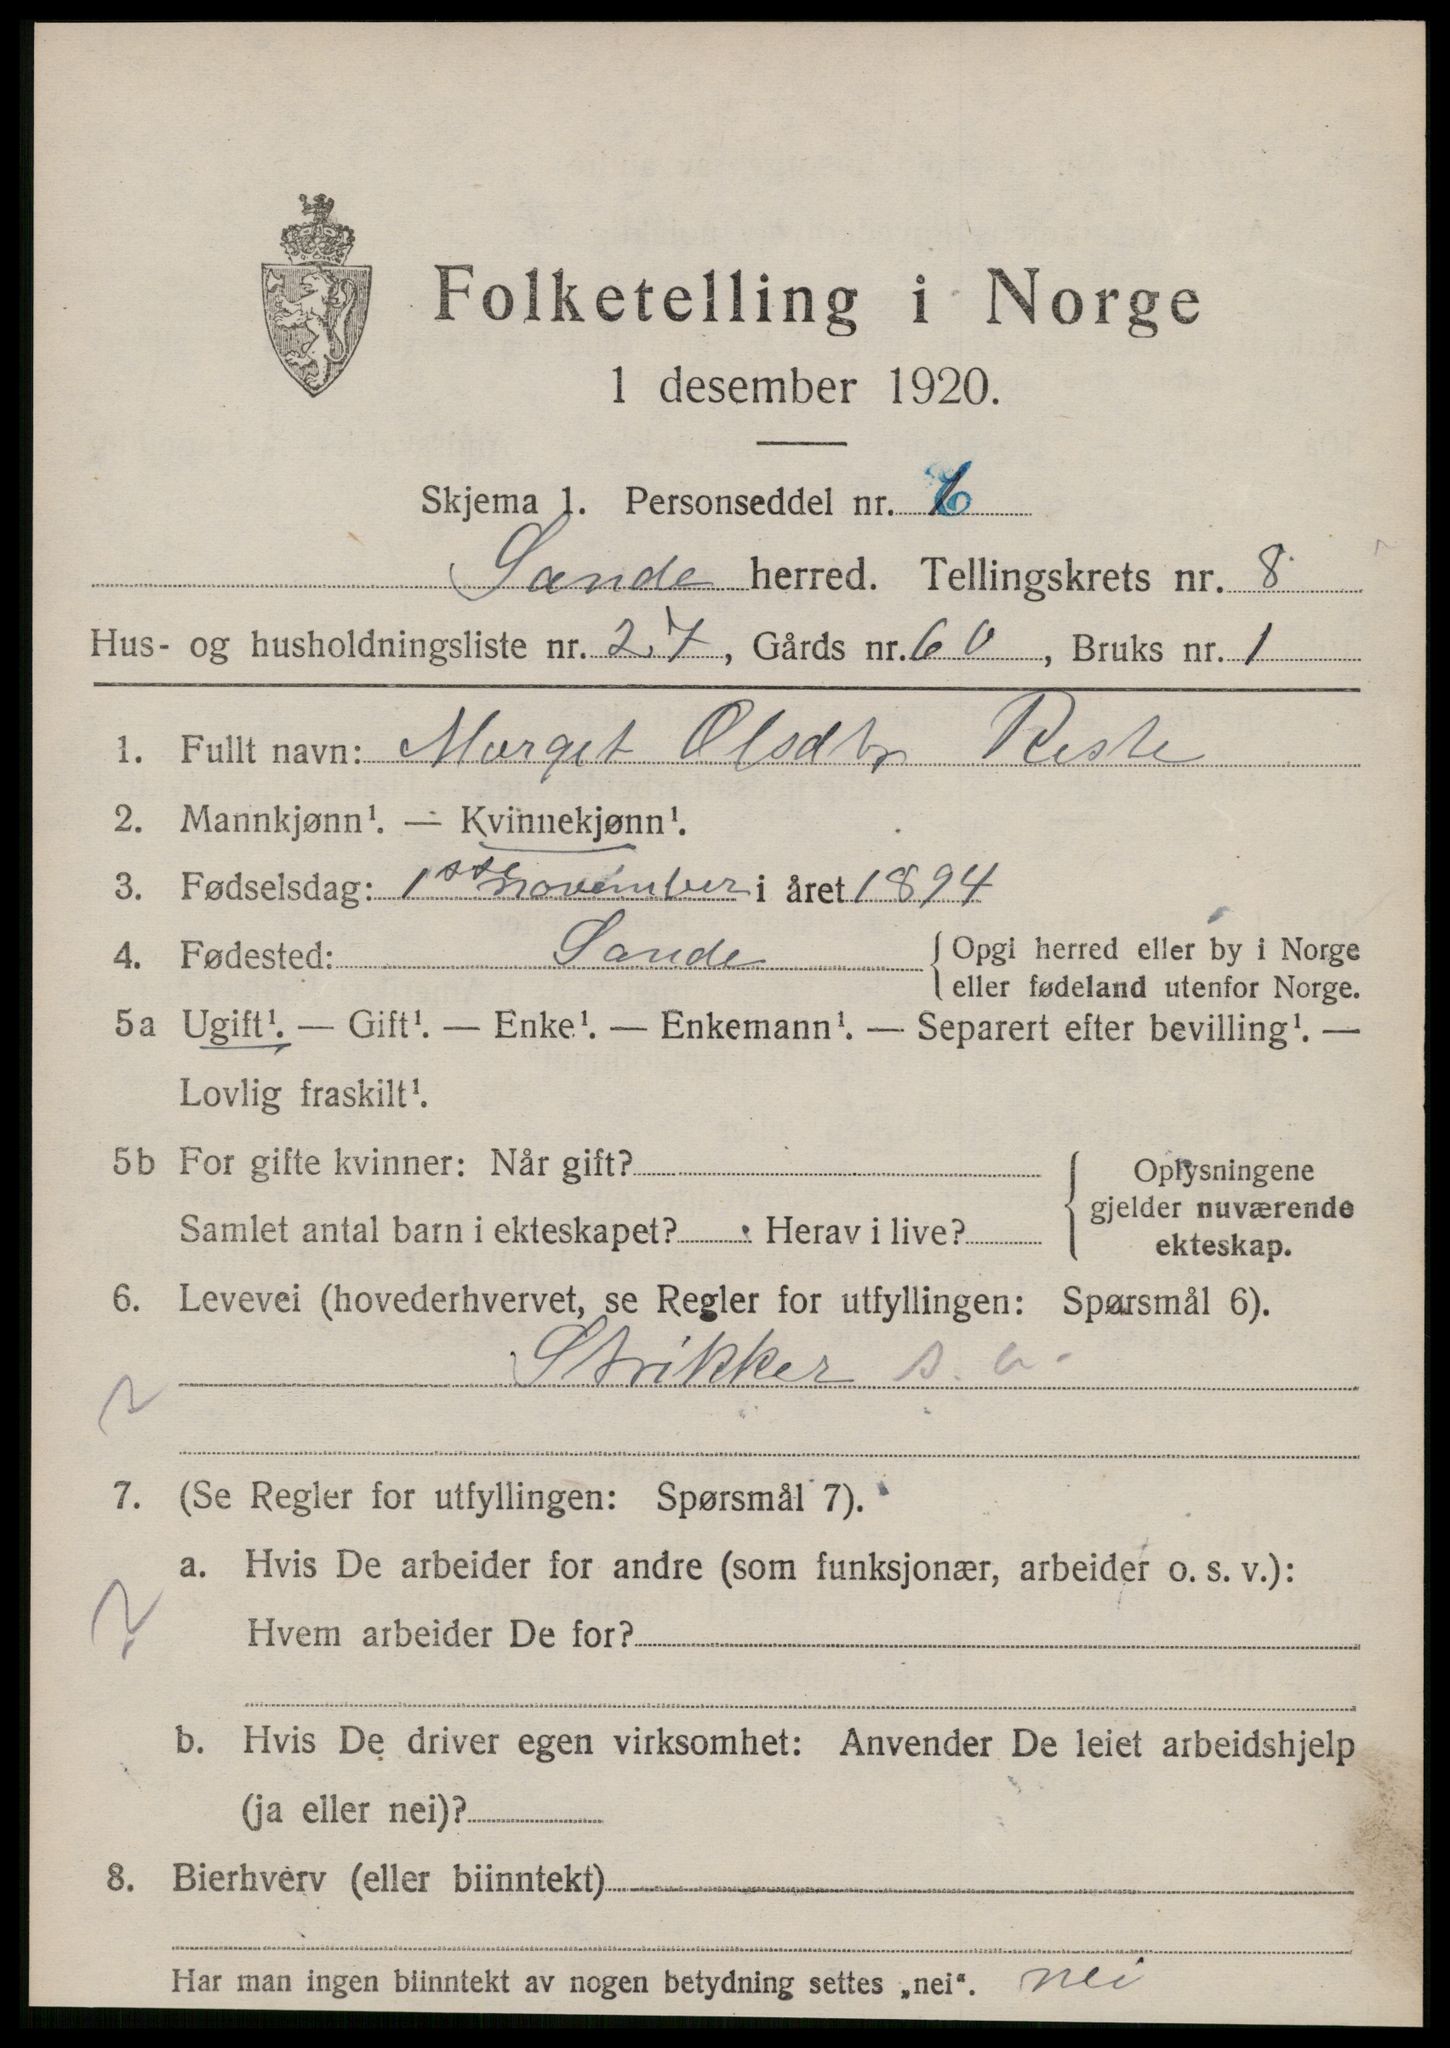 Folketelling i Norge
1 desember 1920.
Skjema 1. Personseddel nr. 6
Sande herred. Tellingskrets nr. 8
Hus- og husholdningsliste nr. 27, Gårds nr. 60, Bruks nr. 1
1. Fullt navn: Marget Olsdtr Riste
2. Mannkjønn¹. — Kvinnekjønn¹.
3. Fødselsdag: 1ste november i året 1894
4. Fødested: Sande { Opgi herred eller by i Norge
eller fødeland utenfor Norge.
5a Ugift¹. — Gift¹. — Enke¹. — Enkemann¹. — Separert efter bevilling¹. —
Lovlig fraskilt¹.
5b For gifte kvinner: Når gift?
Samlet antal barn i ekteskapet? Herav i live?
{ Oplysningene
gjelder nuværende
ekteskap.
6. Levevei (hovederhvervet, se Regler for utfyllingen: Spørsmål 6).
Strikker s. a.
7. (Se Regler for utfyllingen: Spørsmål 7).
a. Hvis De arbeider for andre (som funksjonær, arbeider o. s. v.):
Hvem arbeider De for?
b. Hvis De driver egen virksomhet: Anvender De leiet arbeidshjelp
(ja eller nei)?
8. Bierhverv (eller biinntekt)
Har man ingen biinntekt av nogen betydning settes „nei“. nei